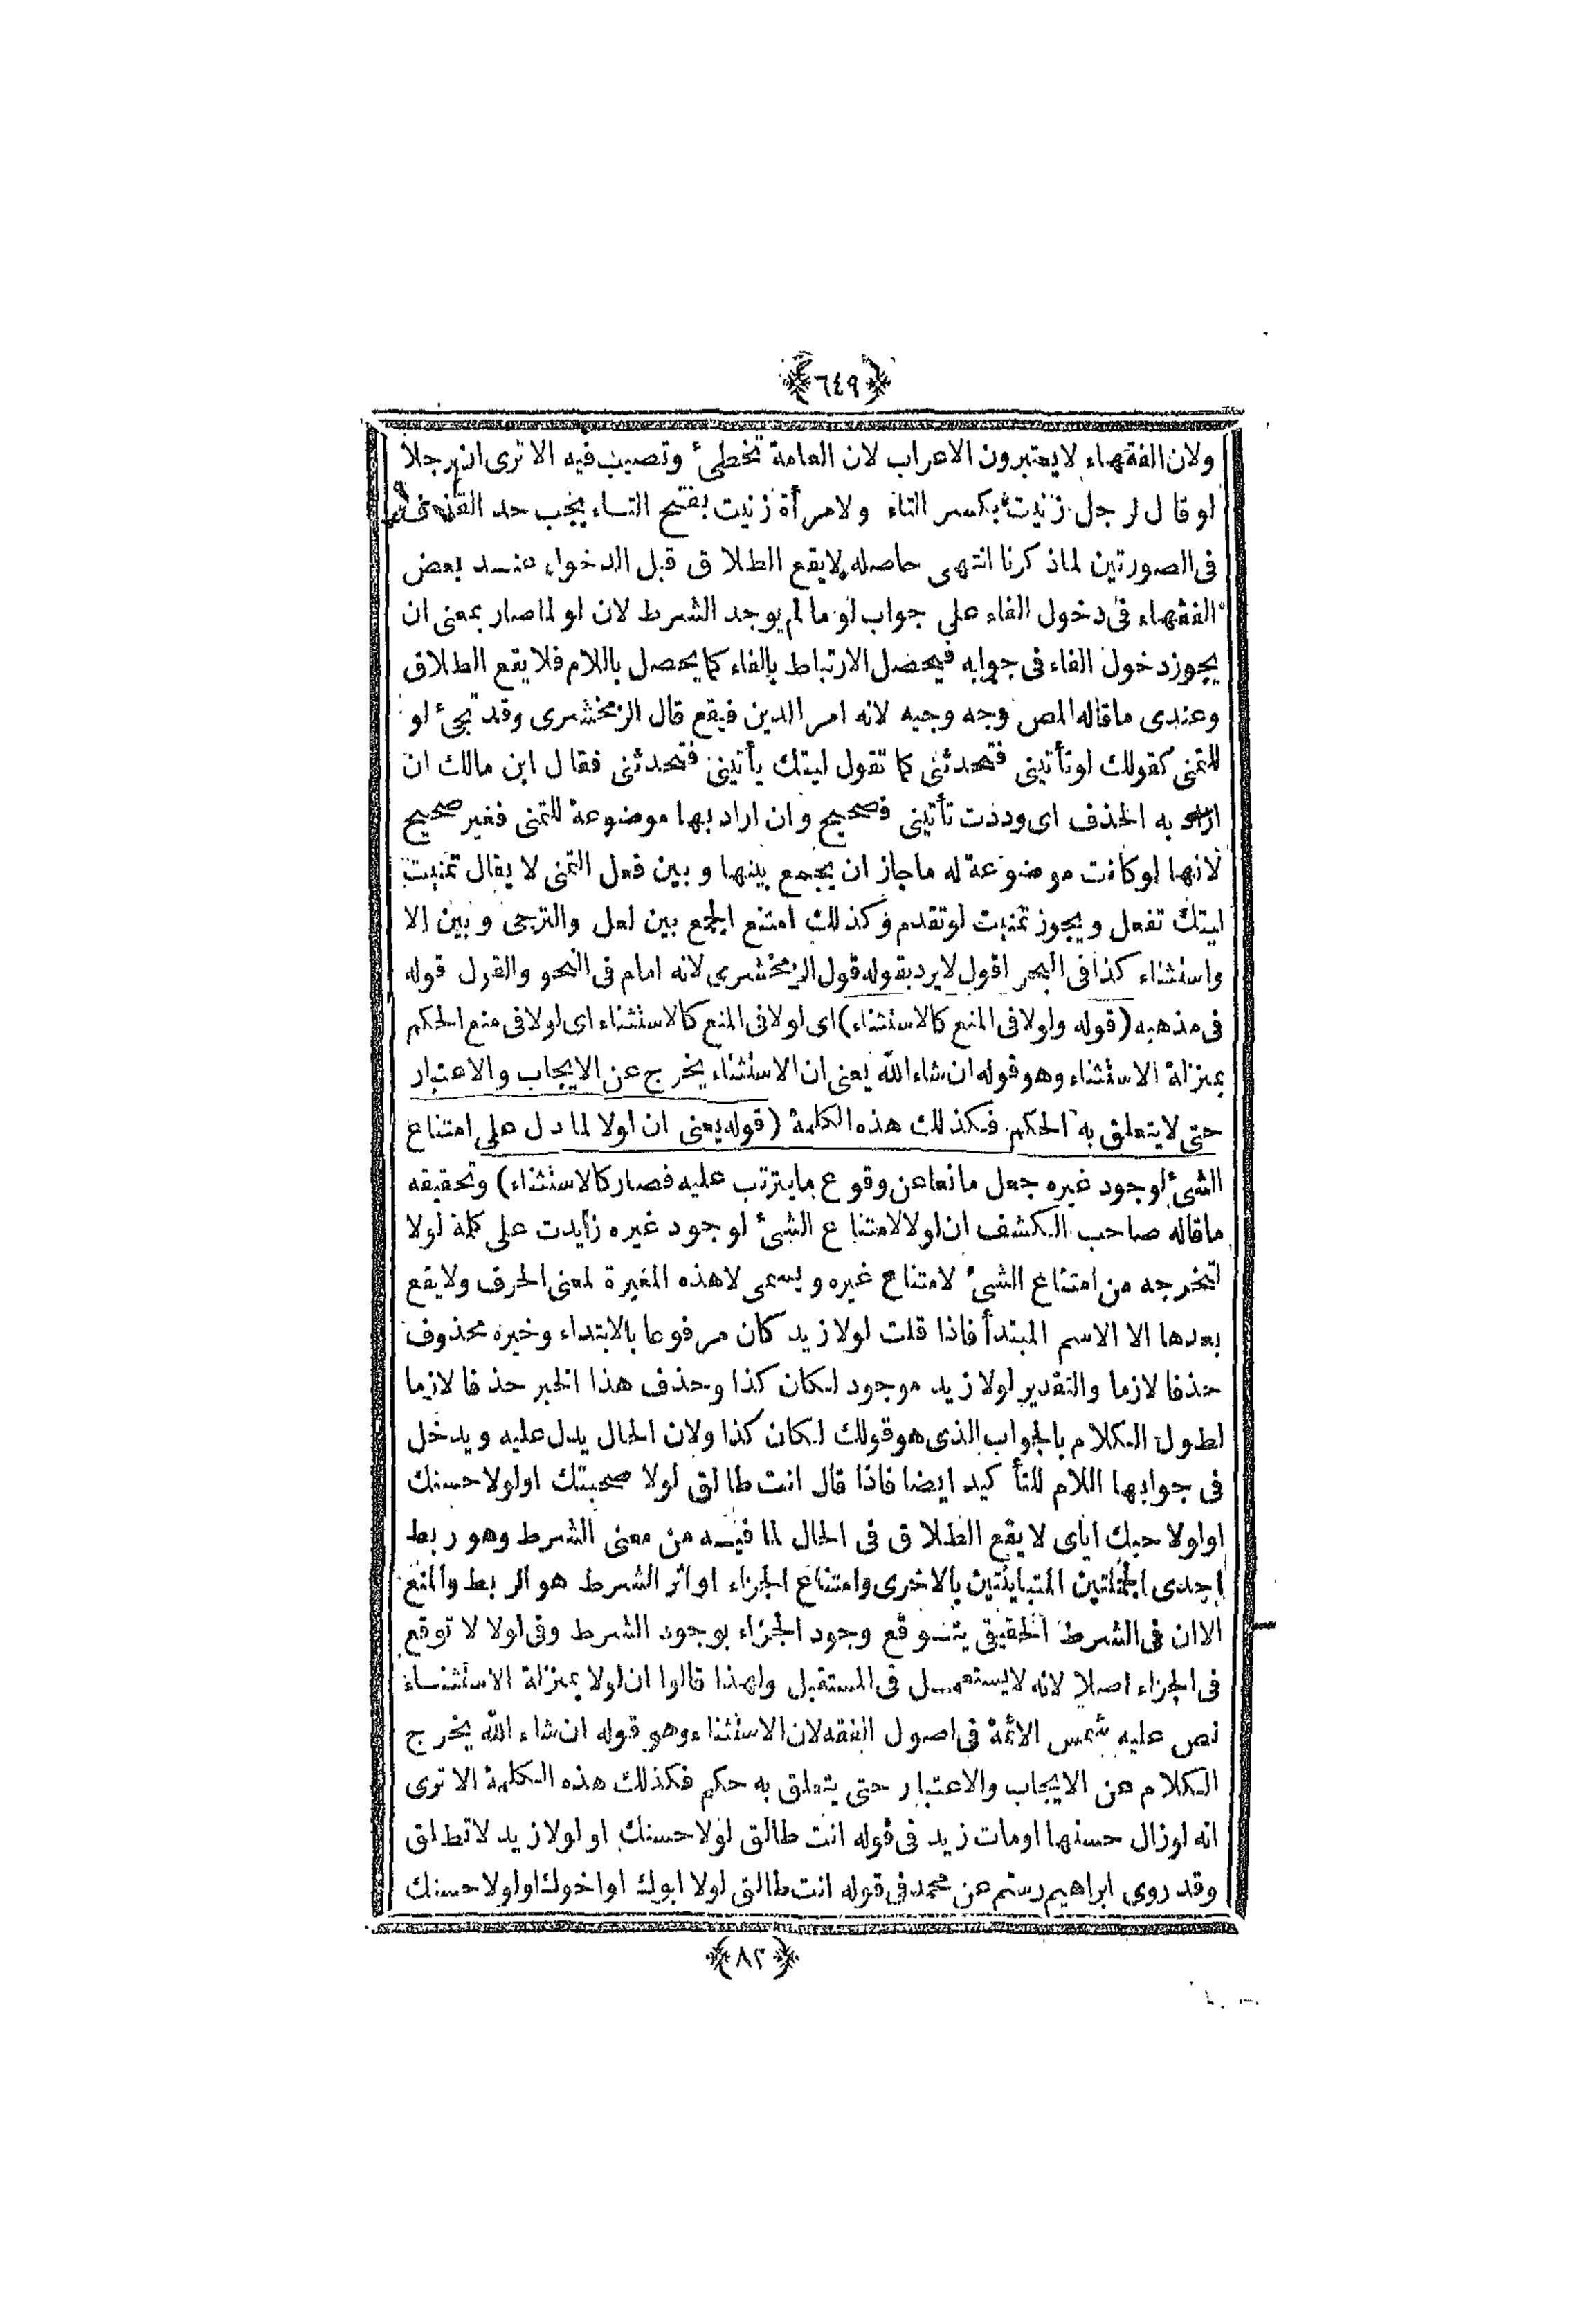 ﴿٦٤٩﴾
ولان الفقهاء لا يعتبرون الاعراب لان العامة تخطئ وتصيب فيه الا ترى ان رجلا
لو قال لرجل زنيت بكسر التاء ولامرأة زنيت بفتح التاء يجب حد القذف
فى الصورتين لما ذكرنا انتهى حاصله لايقع الطلاق قبل الدخول عند بعض
الفقهاء فى دخول الفاء على جواب لو ما لم يوجد الشرط لان لو لما صار بمعنى ان
يجوز دخول الفاء فى جوابه فيحصل الارتباط بالفاء كما يحصل باللام فلا يقع الطلاق
وعندى ما قاله المص وجه وجيه لانه امر الدين فيقع قال الزمخشرى وقد تجئ لو
للتمنى كقولك لو تأتينى فتحدثنى كما تقول ليتك يأتينى فتحدثنى فقال ابن مالك ان
اراد به الحذف اى وددت تأتينى فصحيح وان اراد بها موضوعة للتمنى فغير صحيح
لانها لو كانت موضوعة له ما جاز ان يجمع بينها وبين فعل التمنى لا يقال تمنيت
ليتك تفعل ويجوز تمنيت لو تقدم وكذلك امتنع الجمع بين لعل والترجى وبين الا
واستثناء كذا فى البحر اقول لا يرد بقوله قول الزمخشرى لانه امام فى النحو والقول قوله
فى مذهبه (قوله ولولا فى المنع كالاستثناء) اى لولا فى المنع كالاستثناء اى لولا فى منع الحكم
بمنزلة الاستثناء وهو قوله ان شاء الله يعنى ان الاستثناء يخرج عن الايجاب والاعتبار
حتى لا يتعلق به الحكم فكذلك هذه الكلمة (قوله يعنى ان لولا لما دل على امتناع
الشئ لوجود غيره جعل مانعا عن وقوع ما يترتب عليه فصار كالاستثناء) وتحقيقه
ما قاله صاحب الكشف ان لولا لامتناع الشئ لوجود غيره زايدت على كلمة لولا
لتخرجه من امتناع الشئ لامتناع غيره ويسمى لا هذه المغيرة لمعنى الحرف ولا يقع
بعدها الا الاسم المبتدأ فاذا قلت لولا زيد كان مرفوعا بالابتداء وخبره محذوف
حذفا لازما والتقدير لولا زيد موجود لكان كذا وحذف هذا الخبر حذفا لازما
لطول الكلام بالجواب الذى هو قولك لكان كذا ولان الحال يدل عليه ويدخل
فى جوابها اللام للتأكيد ايضا فاذا قال انت طالق لولا صحبتك او لولا حسنك
او لولا حبك اياى لا يقع الطلاق فى الحال لما فيه من معنى الشرط وهو ربط
احدى الجملتين المتباينتين بالاخرى وامتناع الجزاء او اثر الشرط هو الربط والمنع
الا ان فى الشرط الحقيقى يتوقع وجود الجزاء بوجود الشرط وفى لولا لا توقع
فى الجزاء اصلا لانه لا يستعمل فى المستقبل ولهذا قالوا ان لولا بمنزلة الاستثناء
نص عليه شمس الائمة فى اصول الفقه لان الاستثناء وهو قوله ان شاء الله يخرج
الكلام عن الايجاب والاعتبار حتى يتعلق به حكم فكذلك هذه الكلمة الا ترى
انه لو زال حسنها او مات زيد فى قوله انت طالق لولا حسنك او لولا زيد لا تطلق
وقد روى ابراهيم رستم عن محمد فى قوله انت طالق لولا ابوك او اخوك او لولا حسنك
﴿٨٢﴾